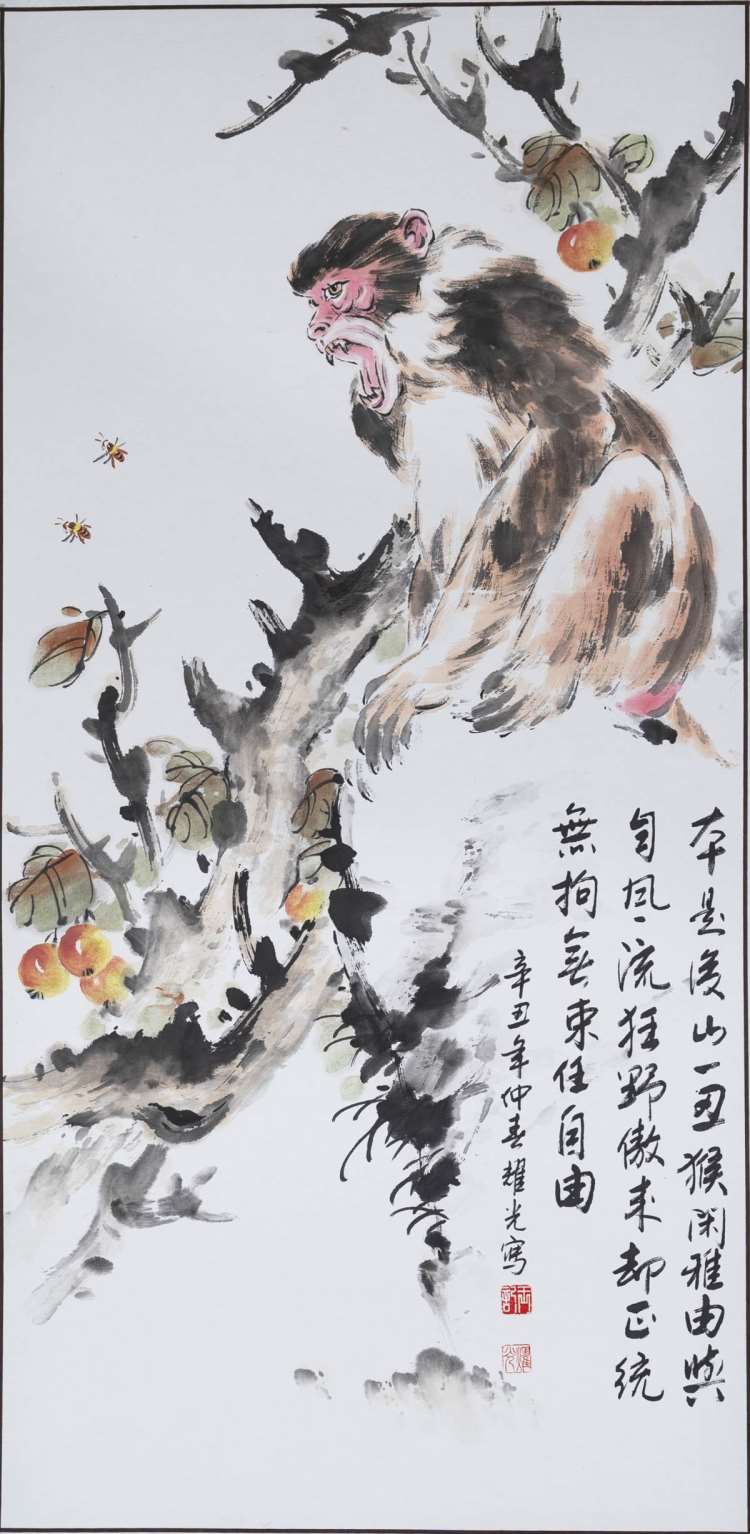 本是後山一丑猴闲雅由與
自风流狂野傲来却正统
無拘無束任自由
辛丑年仲春耀光寫